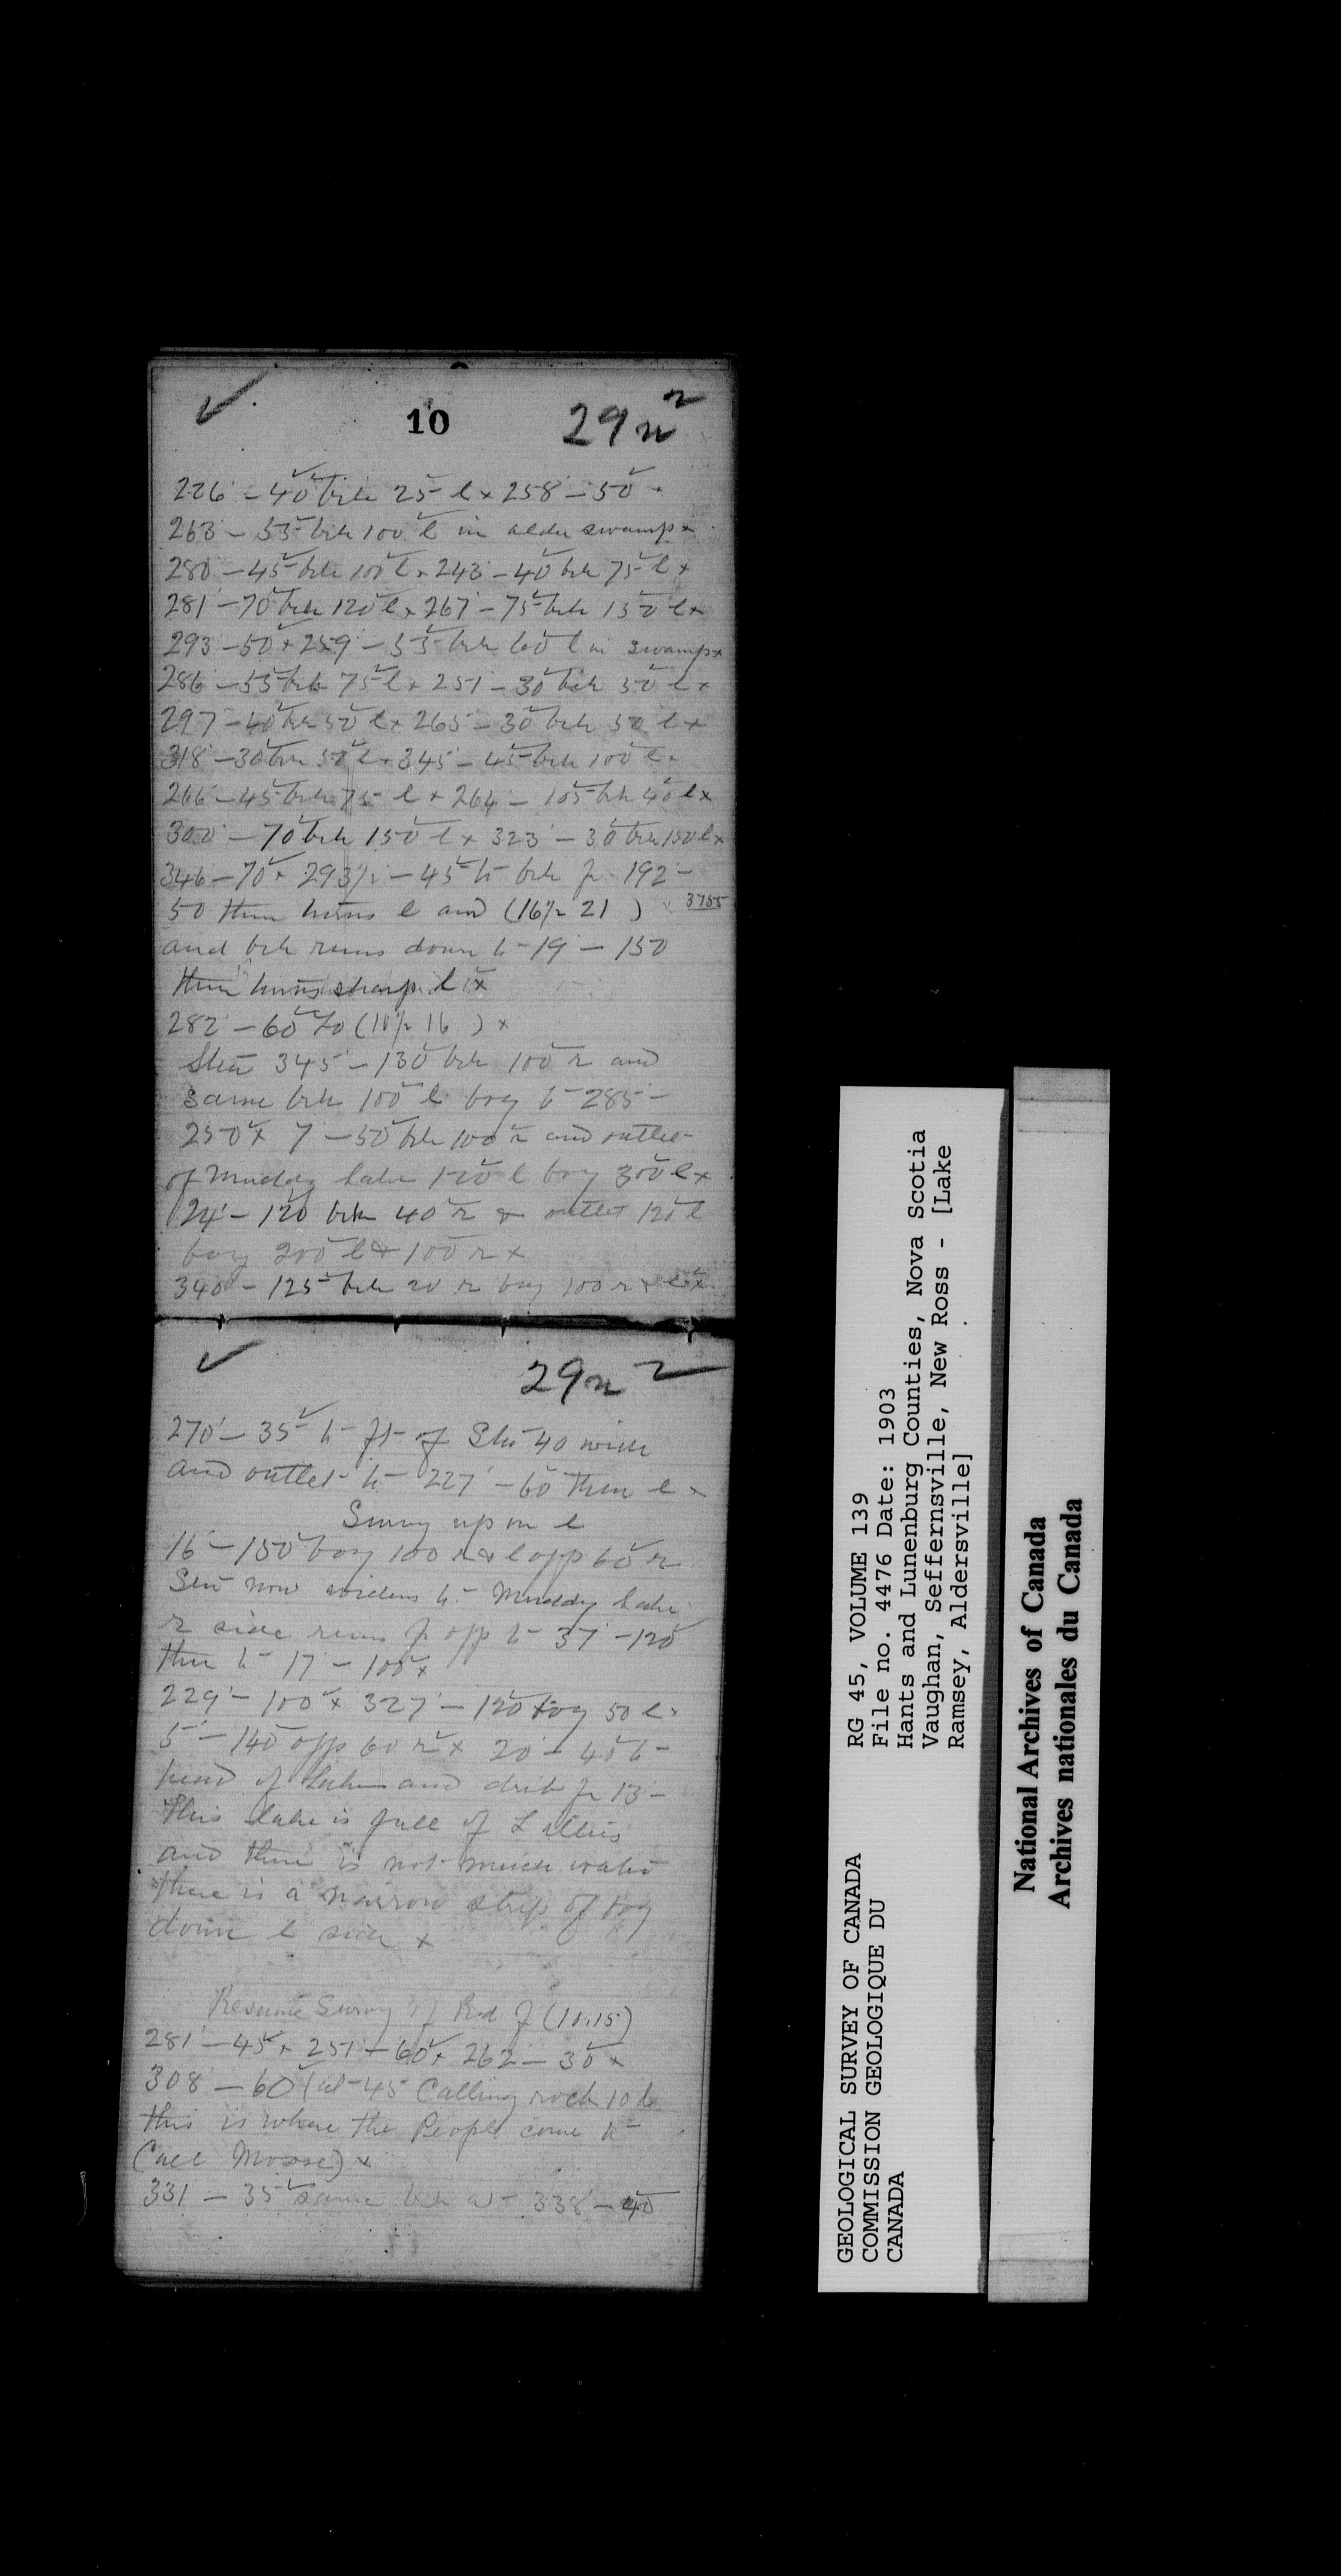 10
29n²
226 - 40 brk 25 l x 258 - 50 x
263 - 55 brk 100 l in alder swamp x
280 - 45 brk 100 l x 243 - 40 brk 75 l x
281 - 70 brk 120 l x 267 - 75 brk 150 l x
293 - 50 x 259 - 55 brk 60 l in swamp x
286 - 55 brk 75 l x 251 - 30 brk 50 l x
297 - 40 brk 50 l x 265 - 30 brk 50 l x
318 - 30 brk 50 l x 345 - 45 brk 100 l x
266 - 45 brk 75 l x 264 - 105 brk 40 l x
300 - 70 brk 150 l x 323 - 30 brk 150 l x
346 - 70 x 293½ - 45 to brk fr 192 -
50 then turns l and (16½ 21 ) 3755
and brk runs down to 19 - 150
then turns sharp l x
282 - 60 to (10½ 16 ) x
Stea 345 - 130 brk 100 r and
same brk 100 l bog to 285 -
250 x 7 - 50 brk 100 r and outlet
of Muddy Lake 120 l bog 300 l x
24 - 120 brk 40 r & outlet 120 l
bog 200 l & 100 r x
340 - 125 brk 20 r bog 100 r & l x
29n²
270 - 35 to ft of Stea 40 wide
and outlet to 227 - 60 then l x
Survey up on l
16 - 150 bog 100 r & l opp 60 r
Stea now widens to Muddy Lake
r side runs fr opp to 37 - 120
then to 17 - 100 x
229 - 100 x 327 - 120 bog 50 l x
5 - 140 opp 60 r x 20 - 40 to
head of Lake and drib fr 13 -
This lake is full of Lillies
and there is not much water
there is a narrow strip of bog
down l side x
Resume Survey of Rd f (10.15)
281 - 45 x 251 - 60 x 262 - 30 x
308 - 60 (at 45 Calling rock 10 l
this is where the People come to
Call Moose) x
331 - 35 same brk at 338 - 40
GEOLOGICAL SURVEY OF CANADA
COMMISSION GEOLOGIQUE DU
CANADA
RG 45, VOLUME 139
File no. 4476 Date: 1903
Hants and Lunenburg Counties, Nova Scotia
Vaughan, Seffernsville, New Ross - [Lake
Ramsey, Aldersville]
National Archives of Canada
Archives nationales du Canada